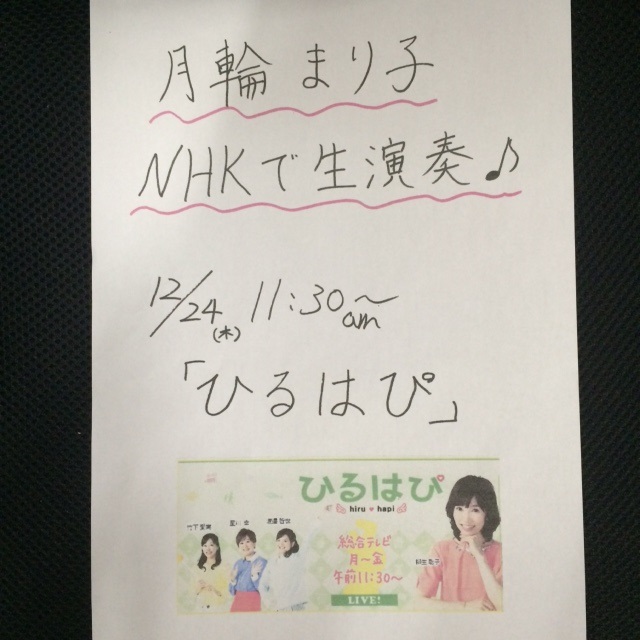 月輪 まり子
NHKで生演奏♪
12/24(木) 11:30am〜
「ひるはぴ」
ひるはぴ
hiru ♥ hapi
総合テレビ
月〜金
午前11:30〜
LIVE!